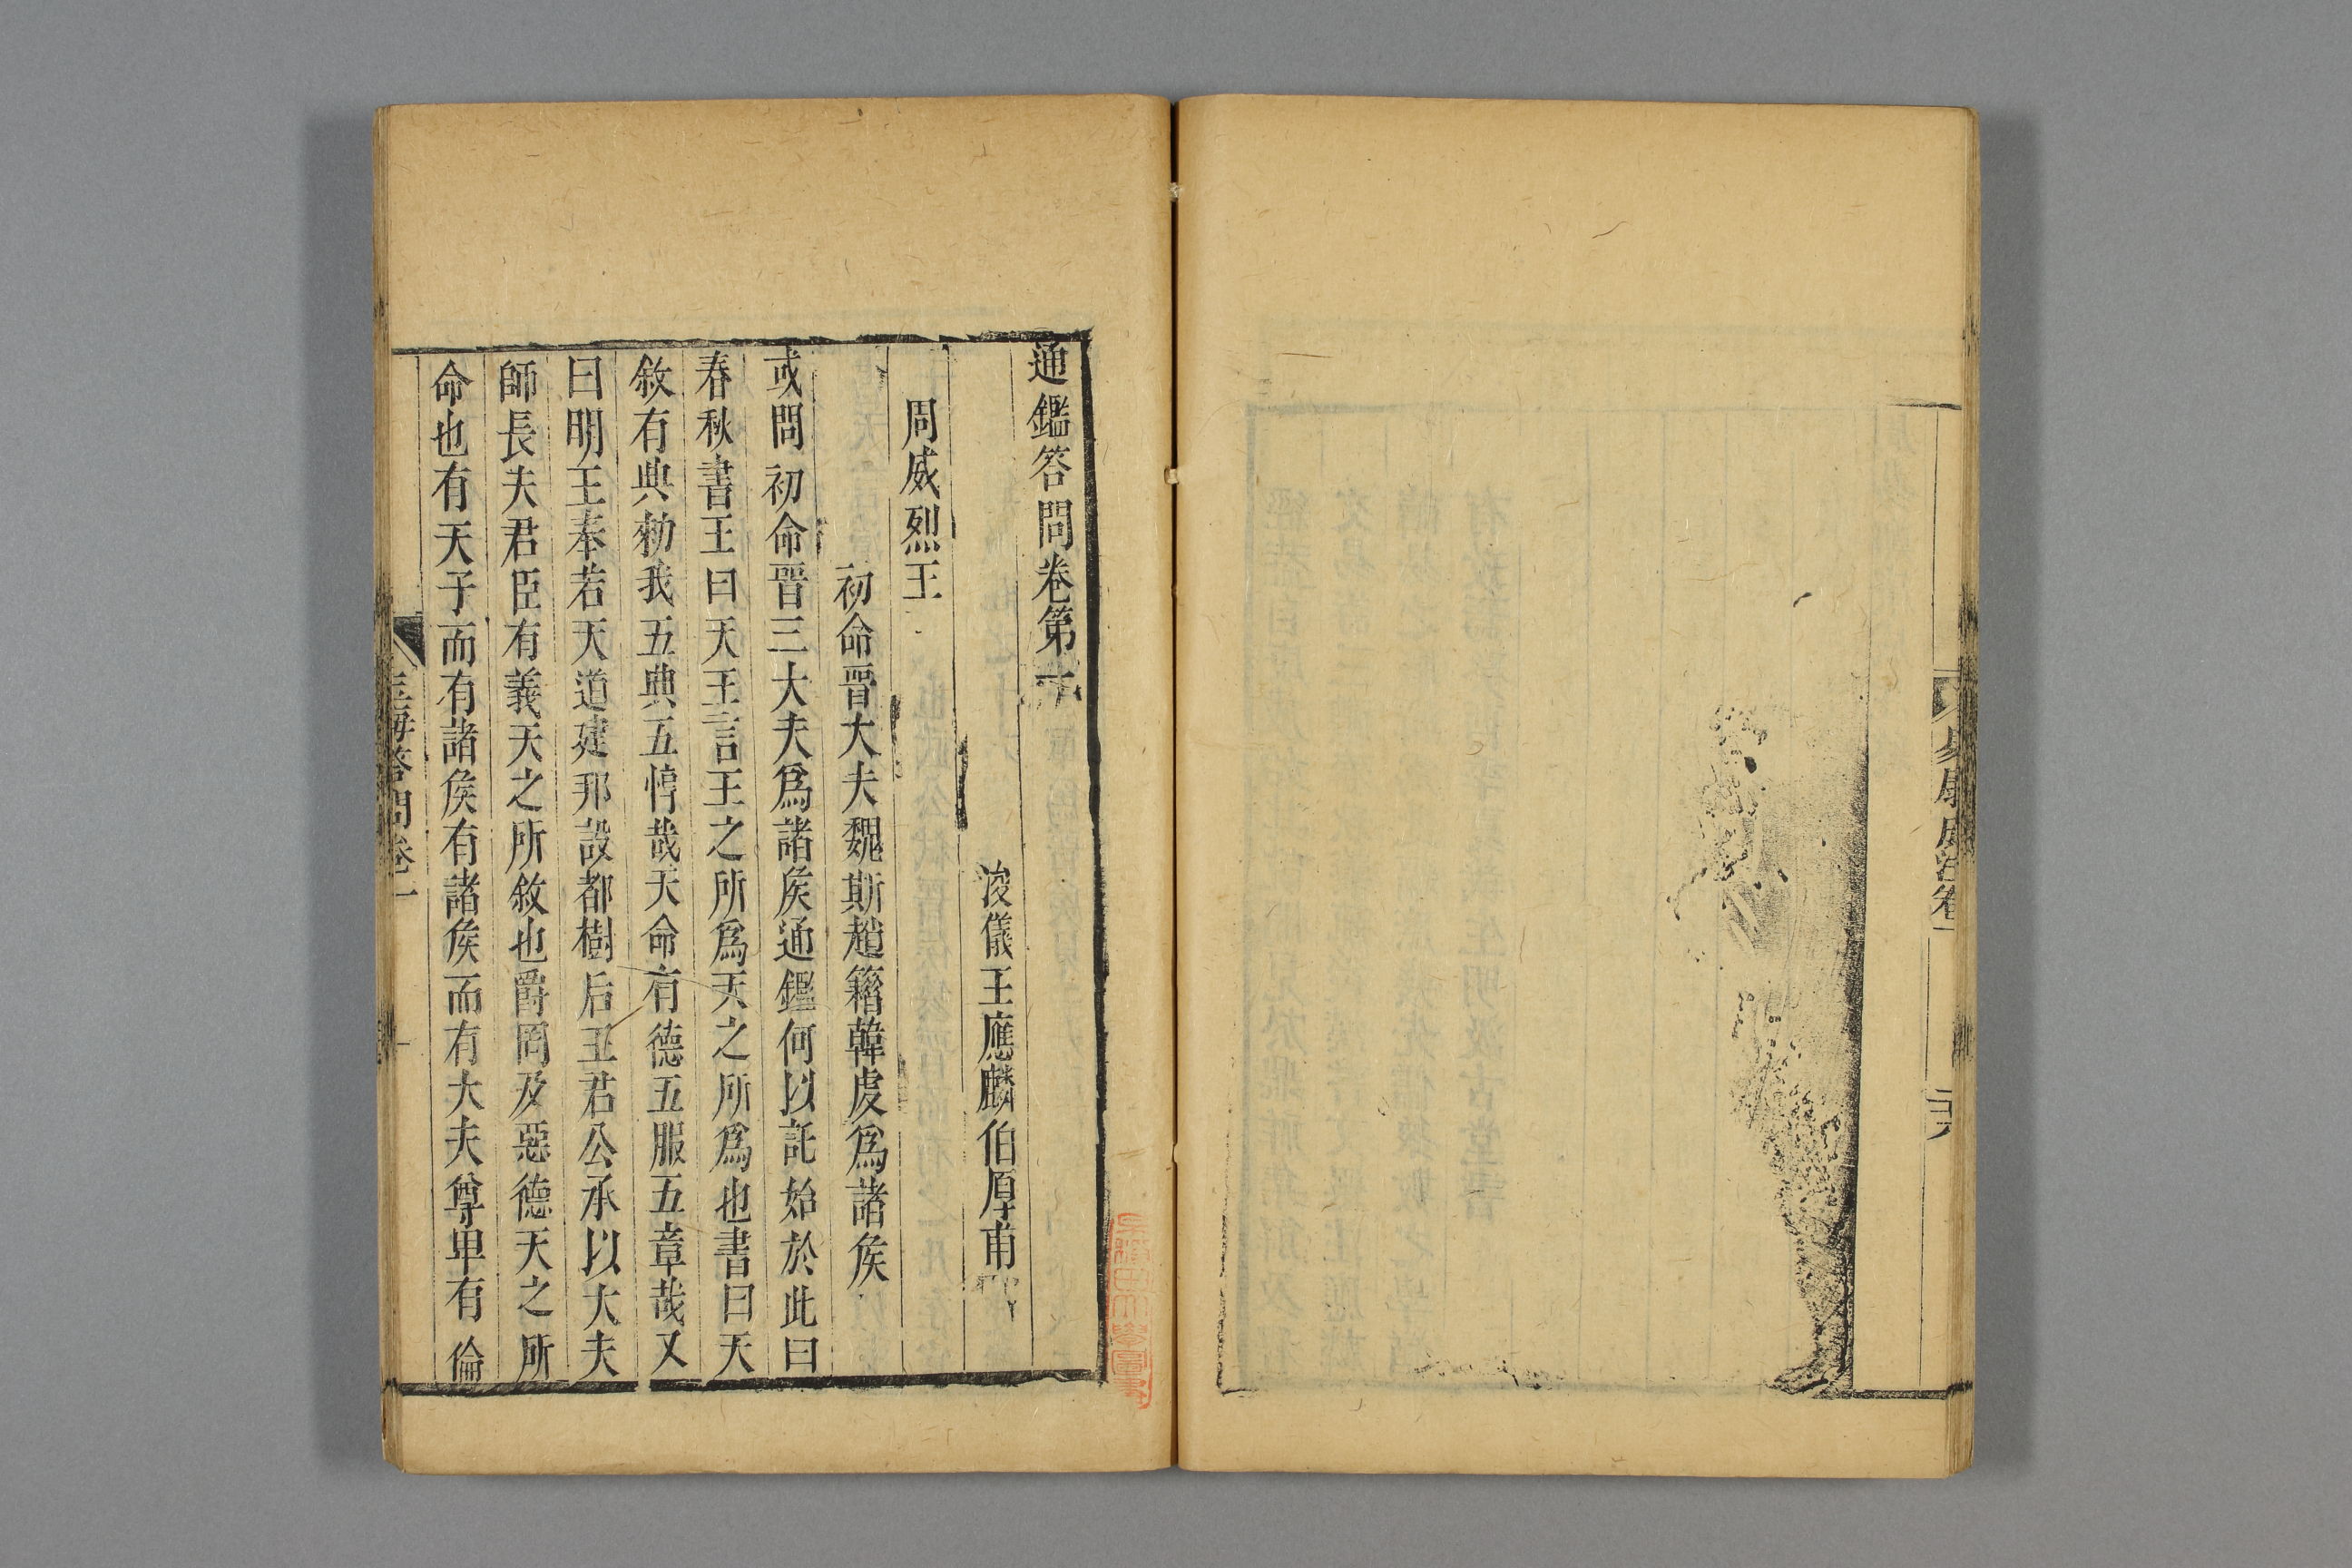 通鑑答問卷第一
浚儀王應麟伯厚甫
周威烈王
初命晉大夫魏斯趙籍韓虔爲諸侯
或問初命晉三大夫爲諸侯通鑑何以託始於此曰
春秋書王曰天王言王之所爲天之所爲也書曰天
敘有典勑我五典五惇哉天命有德五服五章哉又
曰明王奉若天道建邦設都樹后王君公承以大夫
師長夫君臣有義天之所敘也爵罔及惡德天之所
命也有天子而有諸侯有諸侯而有大夫尊卑有倫